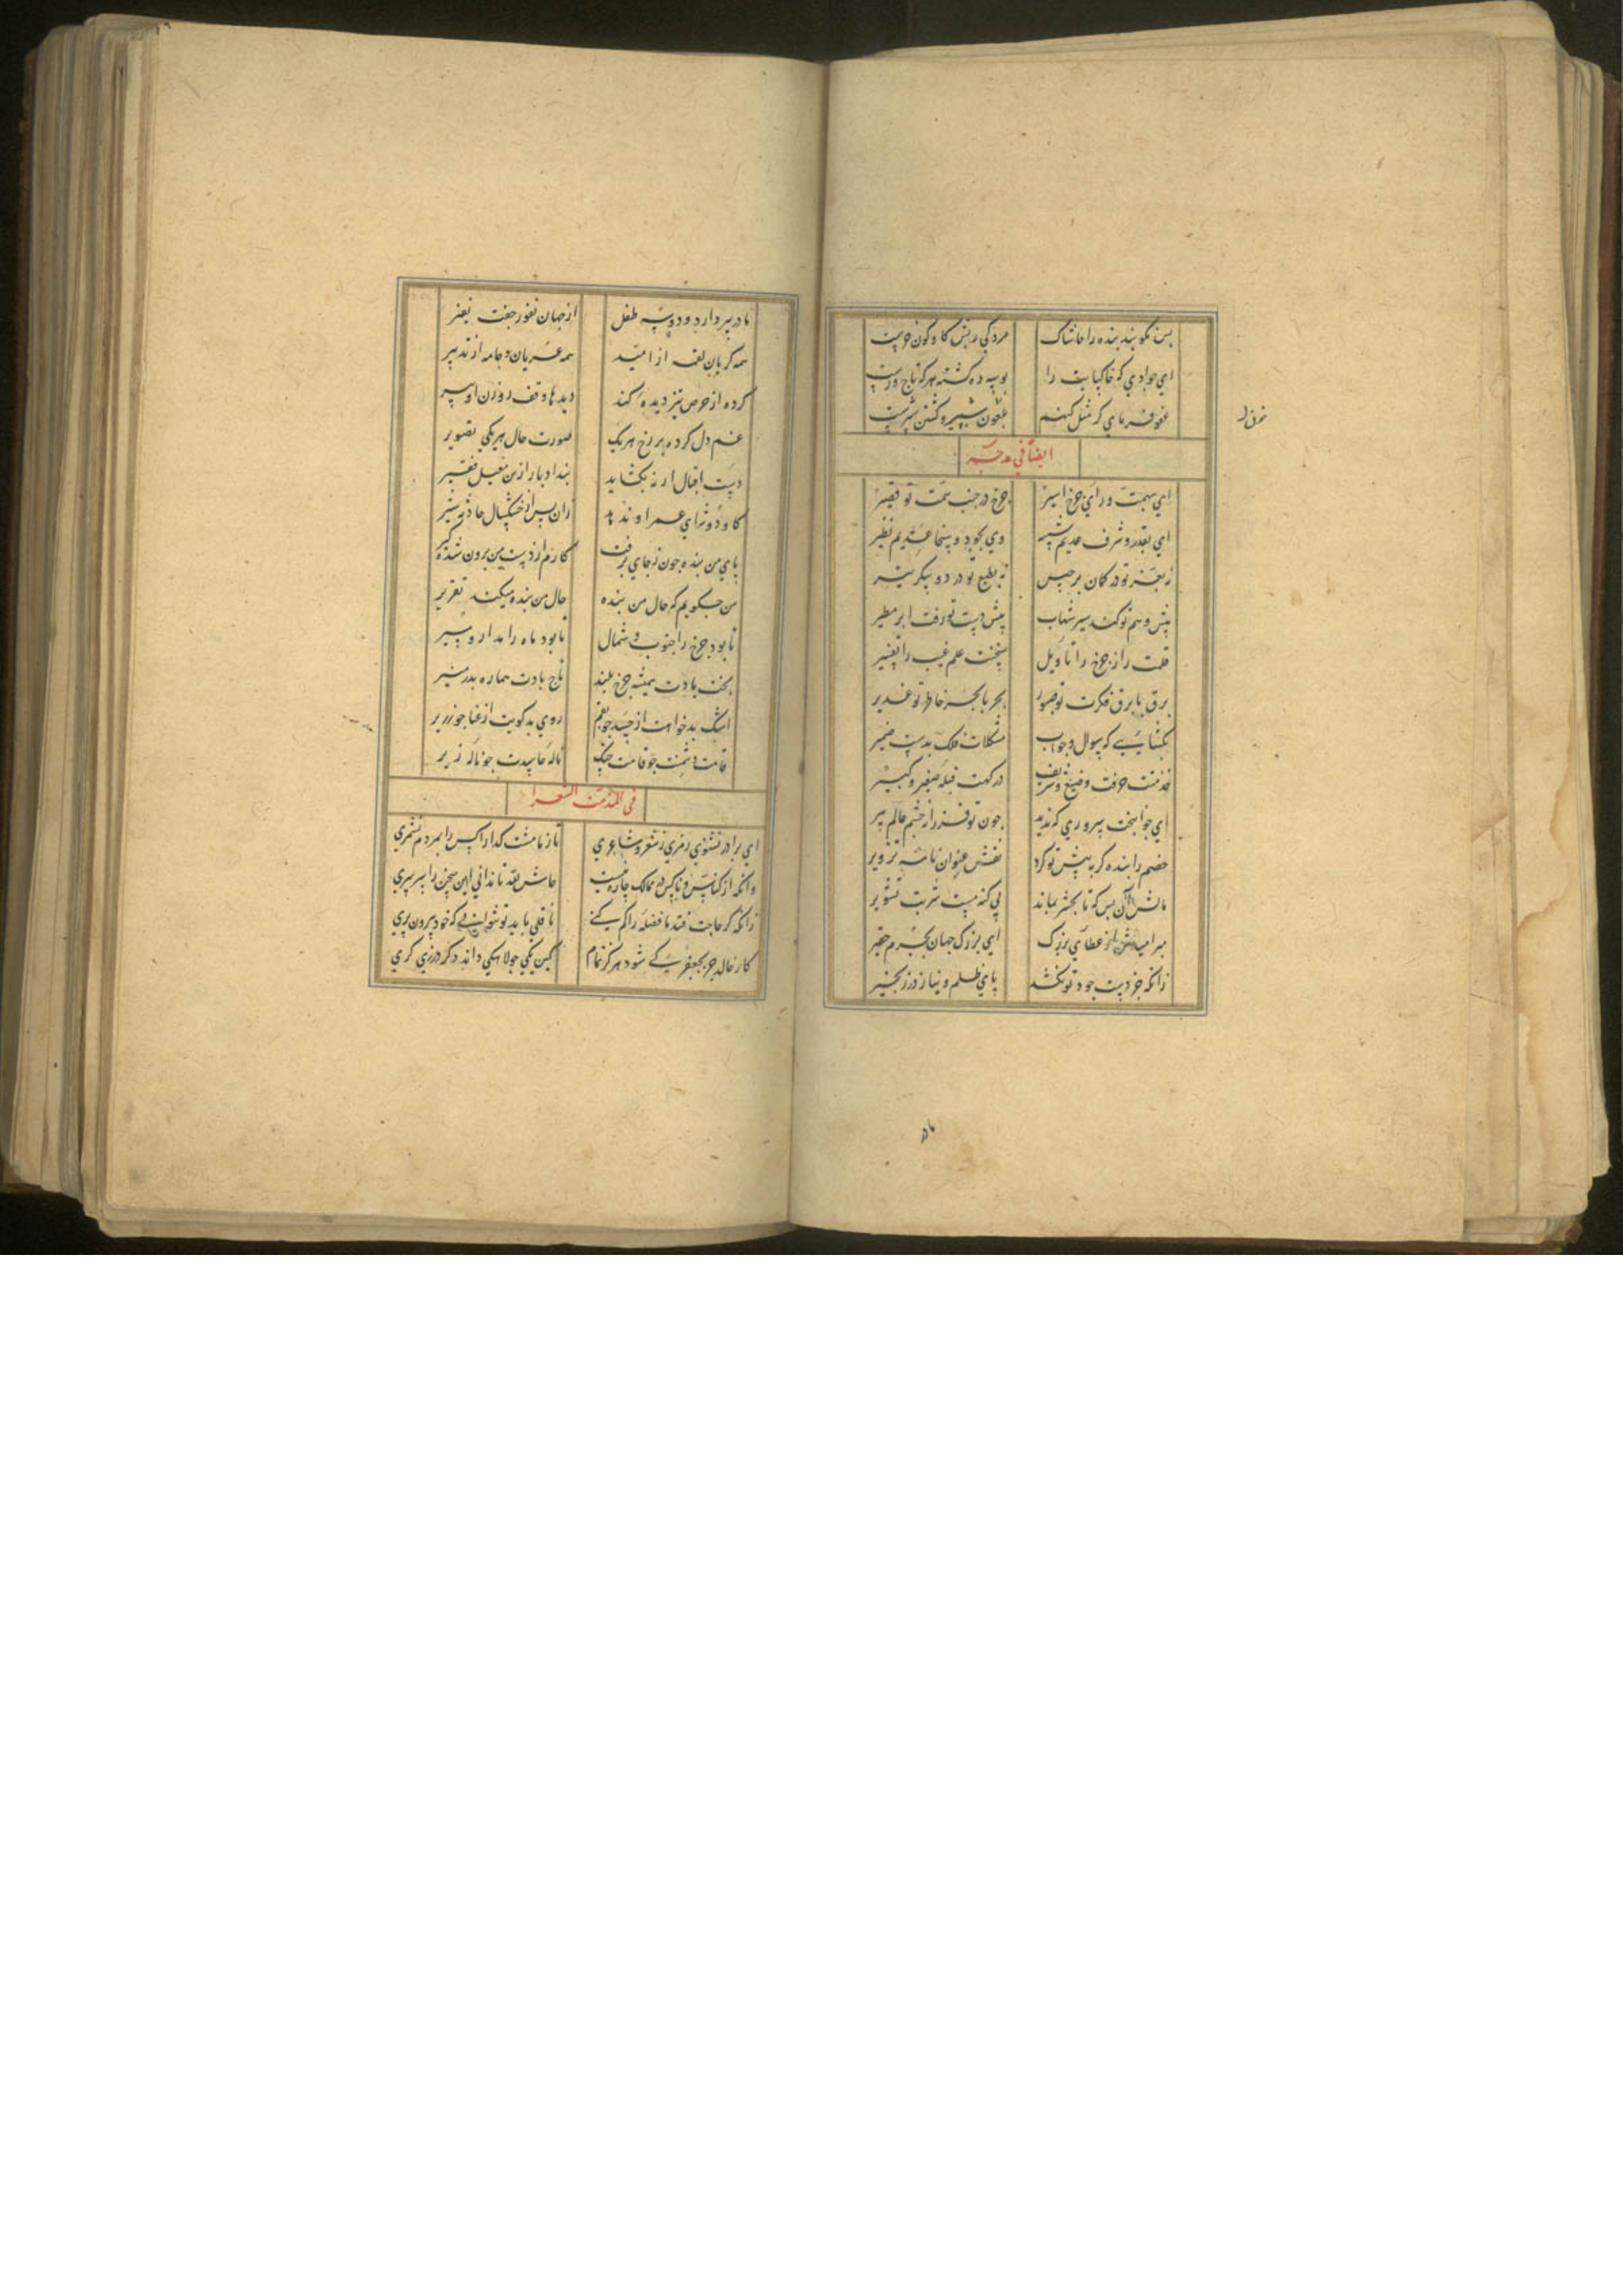 پس نکویند بنده را حاشاک مردکی ریش کاو کون خریت
ای جوادی که خاکپایت را بوسه ده کشته هرکه تاج ورست
عفو فرمای کر مثل کنهم
ایضا فی مدحه
ای بهمت ورای چرخ اسیر چرخ در جنب همت تو قصیر
ای بقدر و شرف عدیم شبیه وی بجود و سخا عدیم نظیر
در کمان برجیس در دو پیکر تیر
پیش وهم تو کند سیر شهاب پیش دست تو زفت ابر مطیر
قلمت راز چرخ را تاویل سخنت علم غیب را تفسیر
برق با برق فکرت تو صبور بحر با بحر خاطر تو غدیر
بکشایی که سوال و جواب مشکلات فلک بدست ضمیر
خدمتت حرفت وضیع و شریف درکهت قبله صغیر و کبیر
ای جوانبخت سروری که ندید چون تو فرزند چشم عالم پیر
خصم را بنده کر به پیش تو کرد نقش عنوان نامه تزویر
مالش آن بس که تا بحشر بماند بی کنه مست شربت تشویر
مبر امیدش از عطای بزرک ای بزرک جهان بجرم حقیر
زانکه جز دست جود تو نکشد پای ظلم و نیاز در زنجیر
مادر پیر دارد و دو سه طفل از جهان نفور جفت نفیر
همه کریان لقمه از امید همه عریان و جامه از تدبیر
کرده از حرص تیز دیده کند دیدها وقف روزن اوسیر
غم دل کرده بر رخ هر یک صورت حال هر یکی تصویر
دست اقبال ار نه بکشاید بند ادبار ازین معیل فقیر
کاو دوشای عمر او ندهد زان پس از خشکسال حادثه شیر
پای من بنده چون ز جای برفت کارم از دست من برون شده کیر
من چکویم که حال من بنده حال من بنده میکند تقریر
تا بود چرخ را جنوب و شمال تا بود ماه را مدار و مسیر
بخت بادت همیشه چرخ بلند تاج بادت هماره بدر منیر
اشک بدخواهت از حسد چو بقم روی بدکویت از عنا چو زریر
قامت دشمنت چو قامت چنک ناله حاسدت چو ناله زیر
فی المذمت الشعرا
ای برادر بشنوی رمزی ز شعر و شاعری تا ز ما مشت کدا را کس را بمردم نشمری
وانکه از کناس ناکس در ممالک چاره نیست حاش لله تا ندانی این سخن را سرسری
زانکه کر حاجت فتد تا فضله را کم کنی ناقلی باید تو نتوانی که خود بیرون بری
کار خالد جز بجعفر کی شود هرکز تمام کین یکی جولاهکی داند دکر درزی کری